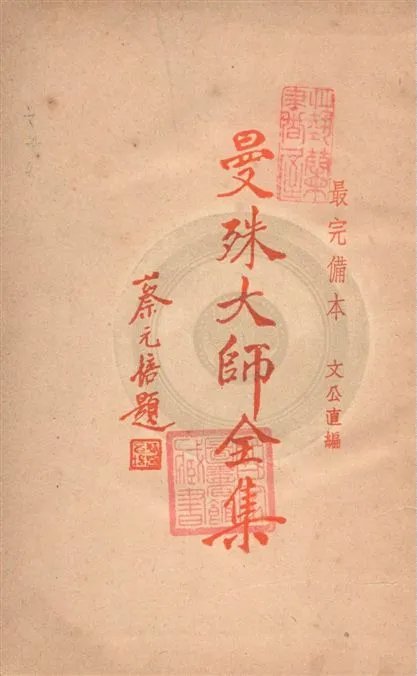 最完備本 文公直編
曼殊大師全集
蔡元培題